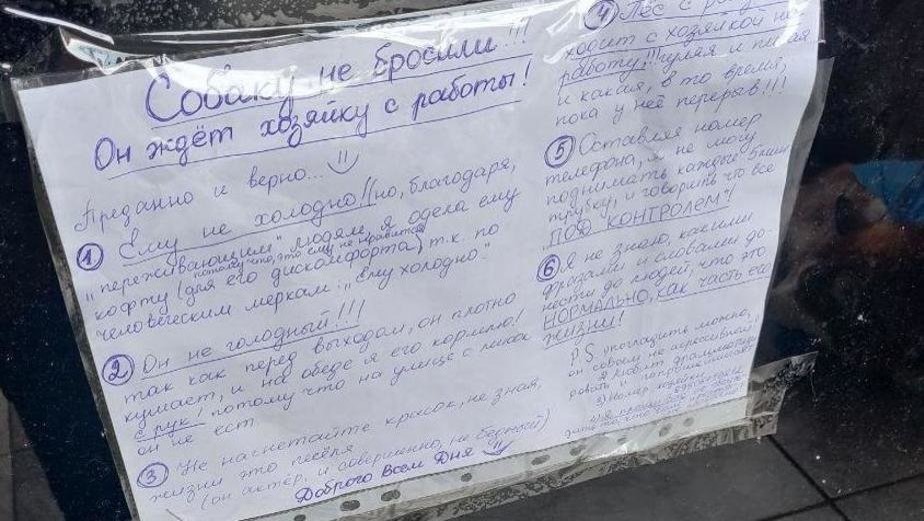 Собаку не бросили!!!
Он ждёт хозяйку с работы!
Преданно и верно...
① Ему не холодно!! (но, благодаря,
"переживающим" людям, я одела ему
потому что, это ему не нравится
кофту (для его дискомфорта), т.к. по
человеческим меркам: "Ему холодно"
② Он не голодный!!!
так как перед выходом, он плотно
кушает, и на обеде я его кормлю!
с рук! потому что на улице с миски
он не ест
③ Не нагнетайте красок, не зная,
жизни это пёселя
(он актёр, и совершенно, не бедный)
Доброго Всем Дня
④ Пёс с
ходит с хозяйкой на
работу!!! гуляя и писая
и какая, в то время,
пока у неё перерыв!!!
⑤ Оставляя номер
телефона, я не могу
поднимать каждые 5 мин
трубку, и говорить что все
"ПОД КОНТРОЛЕМ"!
⑥ Я не знаю, какими
фразами и словами до-
нести до людей, что это
НОРМАЛЬНО, как часть его
жизни!
P.S. угостить можно,
он совсем не агрессивный!